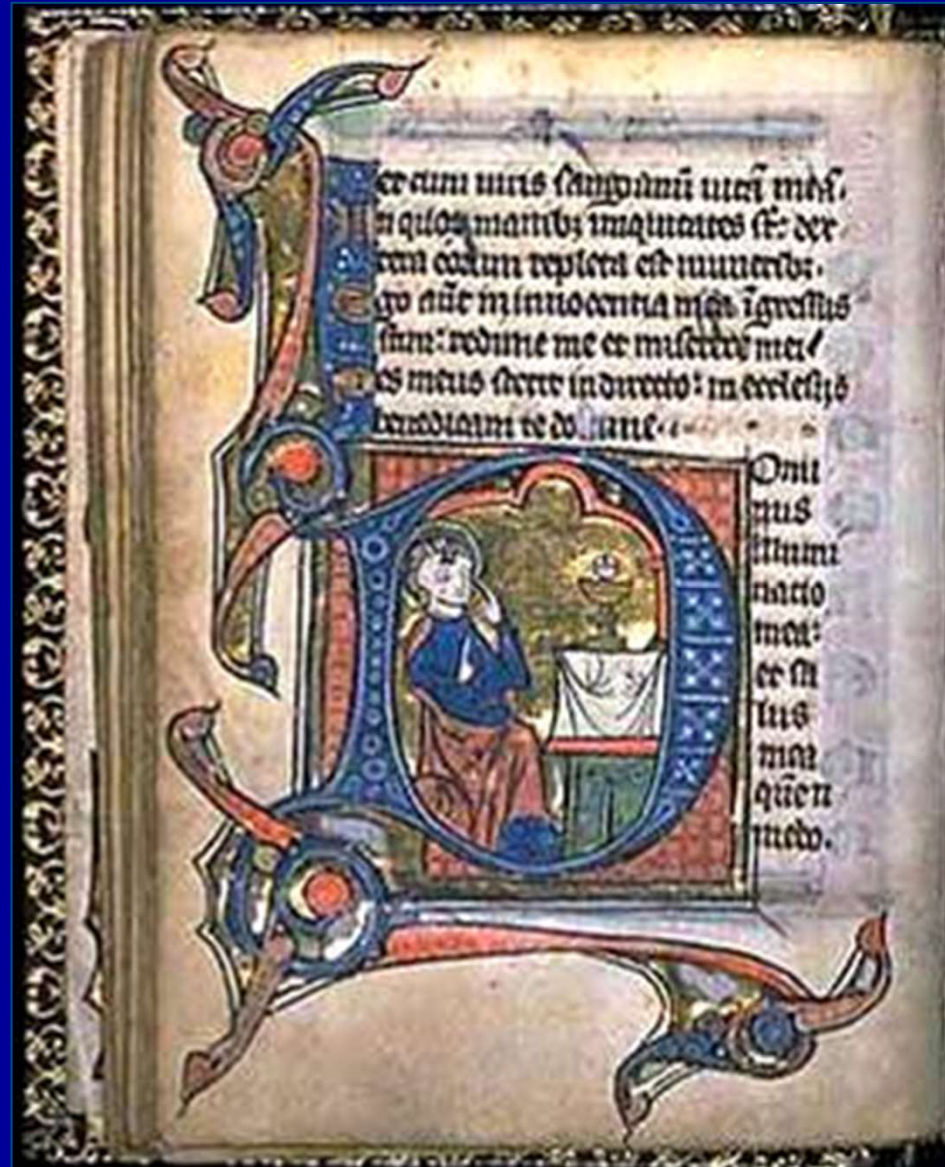 et cum uiris sanguinū uitā meā.
n quoꝝ manibꝫ iniquitates st̄: dex
tera eorum repleta est muneribꝫ.
go aūt in innocentia mea īgressus
sum: redime me et miserere mei
es meus stetit in directo: in ecclesiis
benedicam te domine
Omi
nus
illumi
natio
mea:
et sa
lus
mea
quē
timebo.